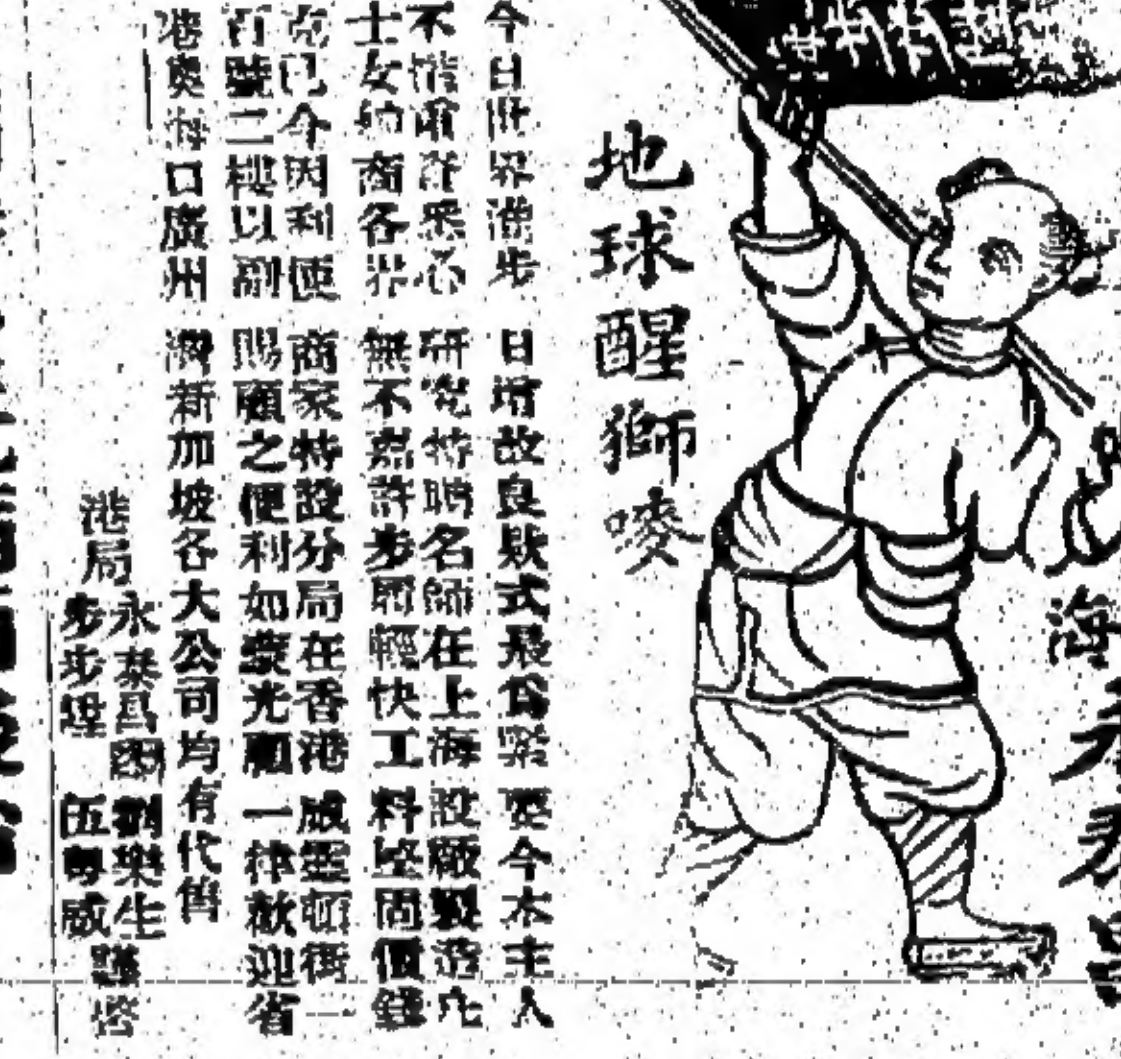 海永泰昌
地球醒獅嘜
今日世界進步日增故良欵式最為緊要今本主人
不惜悉心研究特聘名師在上海設廠製造凡
士女紳商各界無不嘉許步履輕快工料堅固價錢
克己今因利便商家特設分局在香港威靈頓街一
百號二樓以副賜顧之便利如蒙光顧一律歡迎省
港奧海口廣州灣新加坡各大公司均有代售
港局
永泰昌劉樂生
步步陞伍粵威
謹啓